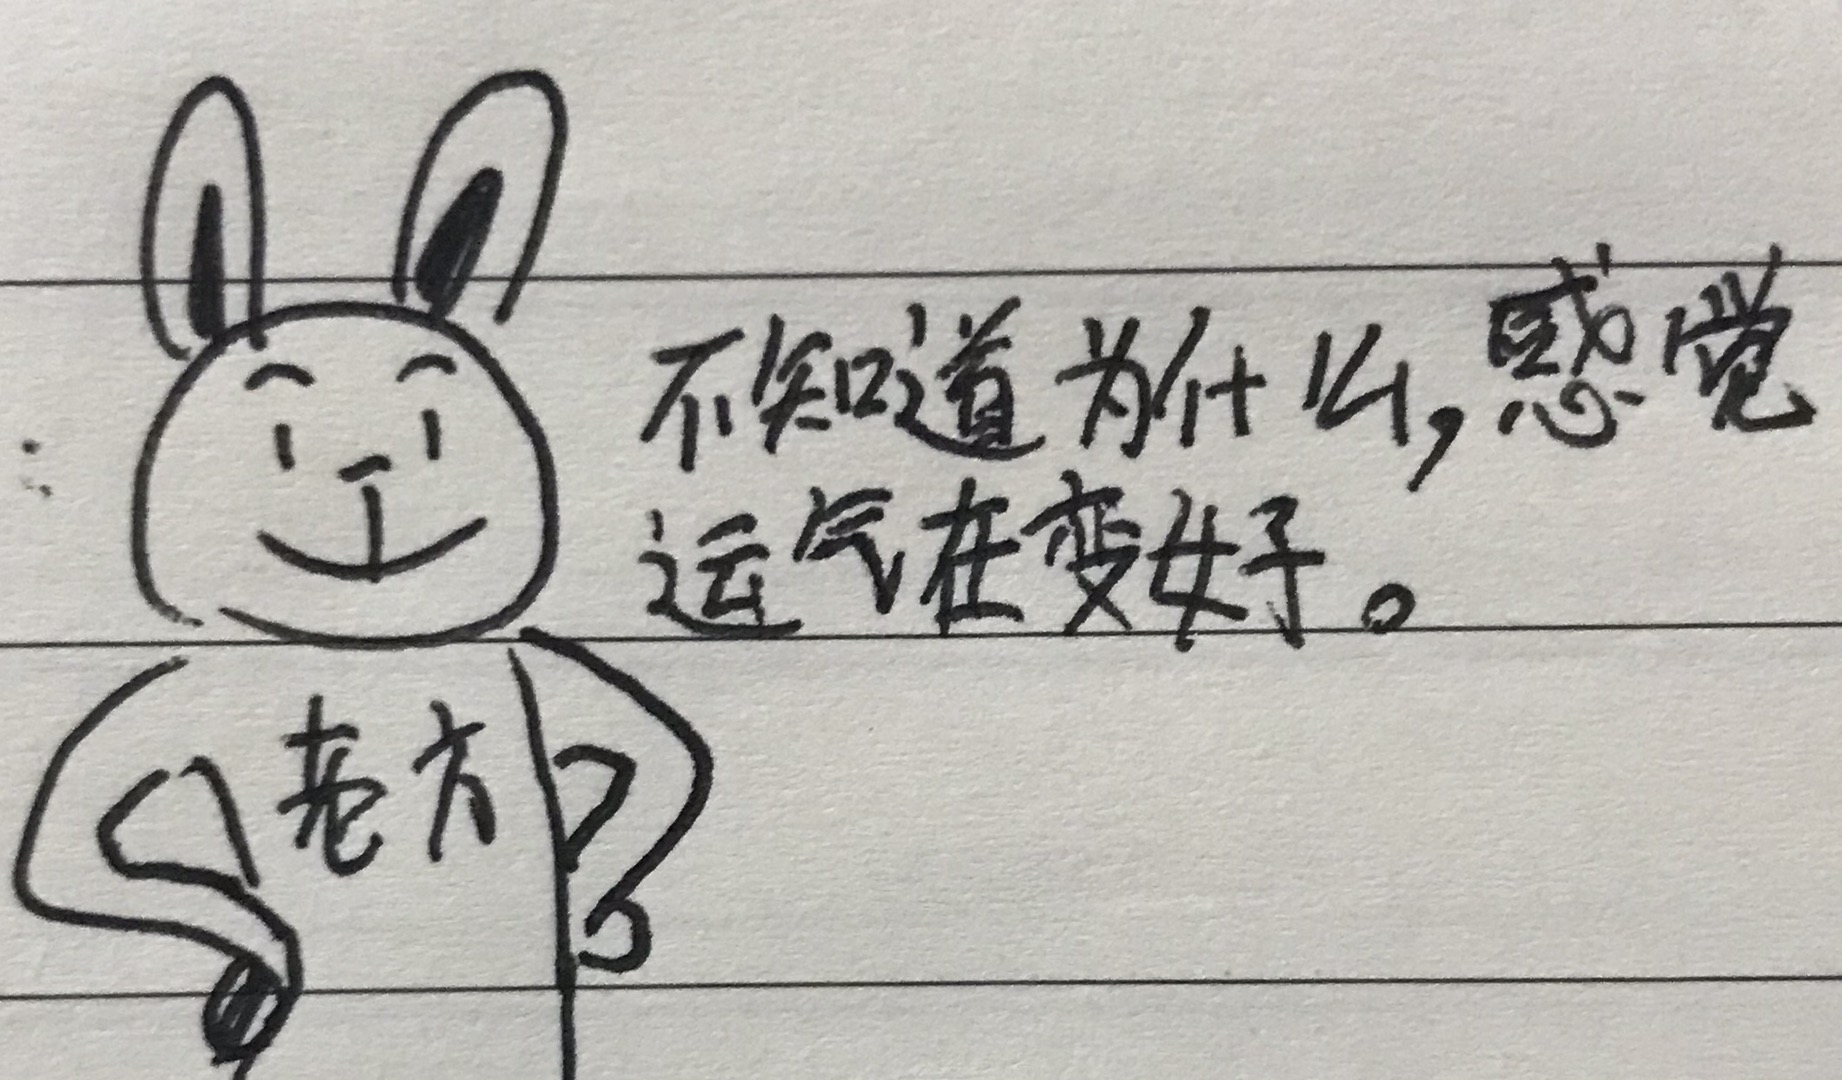 不知道为什么,感觉
运气在变好。
老方